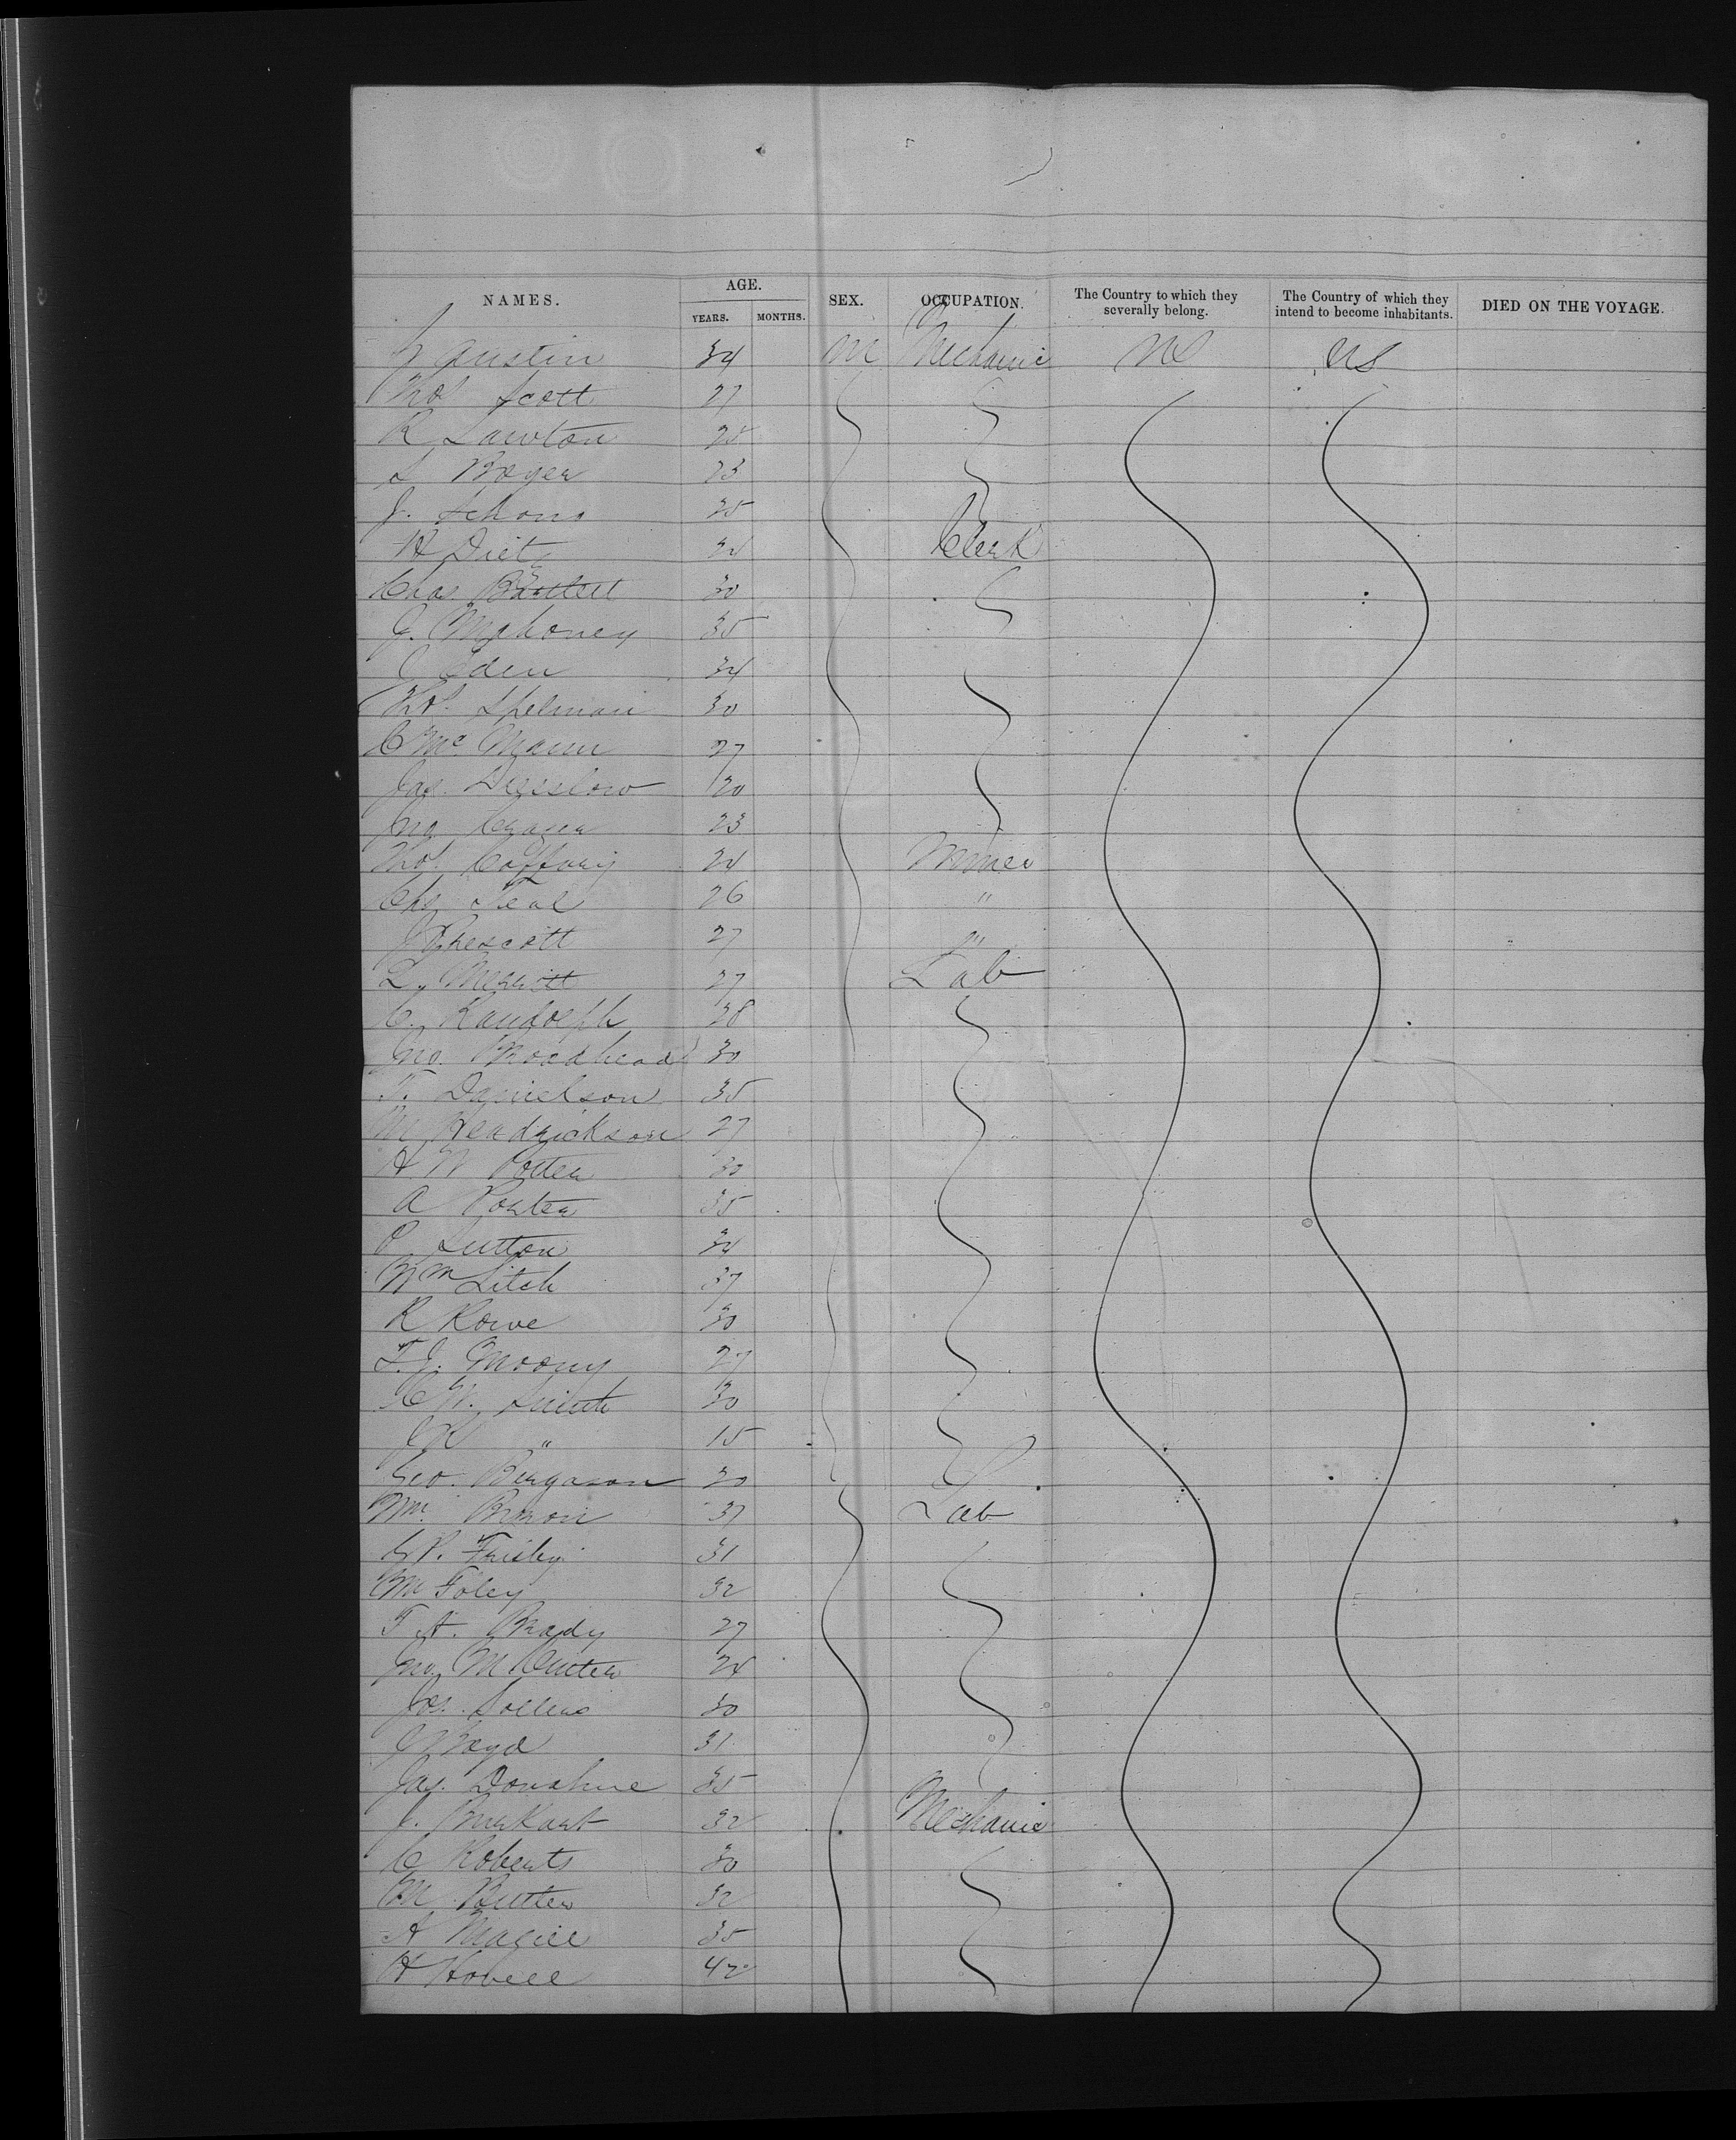 NAMES. AGE. SEX. OCCUPATION. The Country to which they severally belong. The Country of which they intend to become inhabitants. DIED ON THE VOYAGE.
YEARS. MONTHS.
J Austin 34 M Mechanic US US
Thos Scott 27
R Lawton 25
S Boger 23
J. Schons 25
H Diet Clerk
Chas. Bartlett 30
J. Mahoney 35
J Eden 34
Thos. Spelman 30
C Mc Mann 27
Jas. Winslow 20
Jno. 23
Thos. Caffary 24 Miner
Chs Teal 26 "
J Prescott 27 "
L. Merritt 27 Lab
C. Randolph 28
Jno. Broadhead 30
T. Danielson 35
M Hendrickson 27
H W Potter 30
A Porter 35
P Sutton 34
Wm Litch 37
R Rowe 30
T. J. Moony 27
H W. Smith 30
J R " 15
Geo. Bergason 30
Wm. Brown 37 Lab
G P. Frisby 31
M Foley 32
T A. Brady 27
Jno. McCarter 24
Jos. Sollers 30
J Boyd 31
Jas. Donahue 35
J. Burkart 32 Mechanic
C Roberts 30
M Butler 32
A Magill 35
H Howell 42